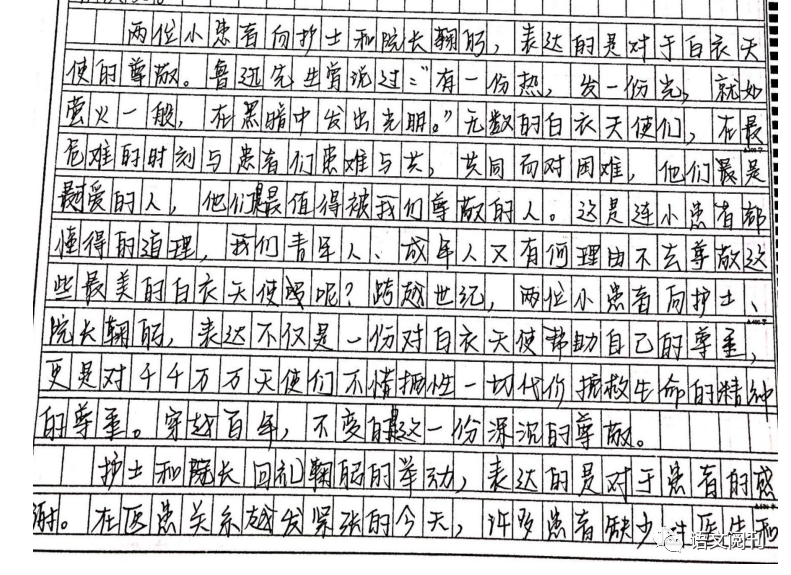 两位小患者向护士和院长鞠躬，表达的是对于白衣天
使的尊敬。鲁迅先生曾说过："有一份热，发一份光，就如
萤火一般，在黑暗中发出光明。"无数的白衣天使们，在最
危难的时刻与患者们患难与共，共同面对困难，他们最是
最可爱的人，他们是最值得被我们尊敬的人。这是连小患者都
懂得的道理，我们青年人、成年人又有何理由不去尊敬这
些最美的白衣天使呢？跨越世纪，两位小患者向护士、
院长鞠躬，表达不仅是一份对白衣天使帮助自己的尊重，
更是对千千万万天使们不惜牺牲一切代价拯救生命的精神
的尊重。穿越百年，不变的是这一份深沉的尊敬。
护士和院长回礼鞠躬的举动，表达的是对于患者的感
谢。在医患关系越发紧张的今天，许多患者缺少对医生和
语文阅刊